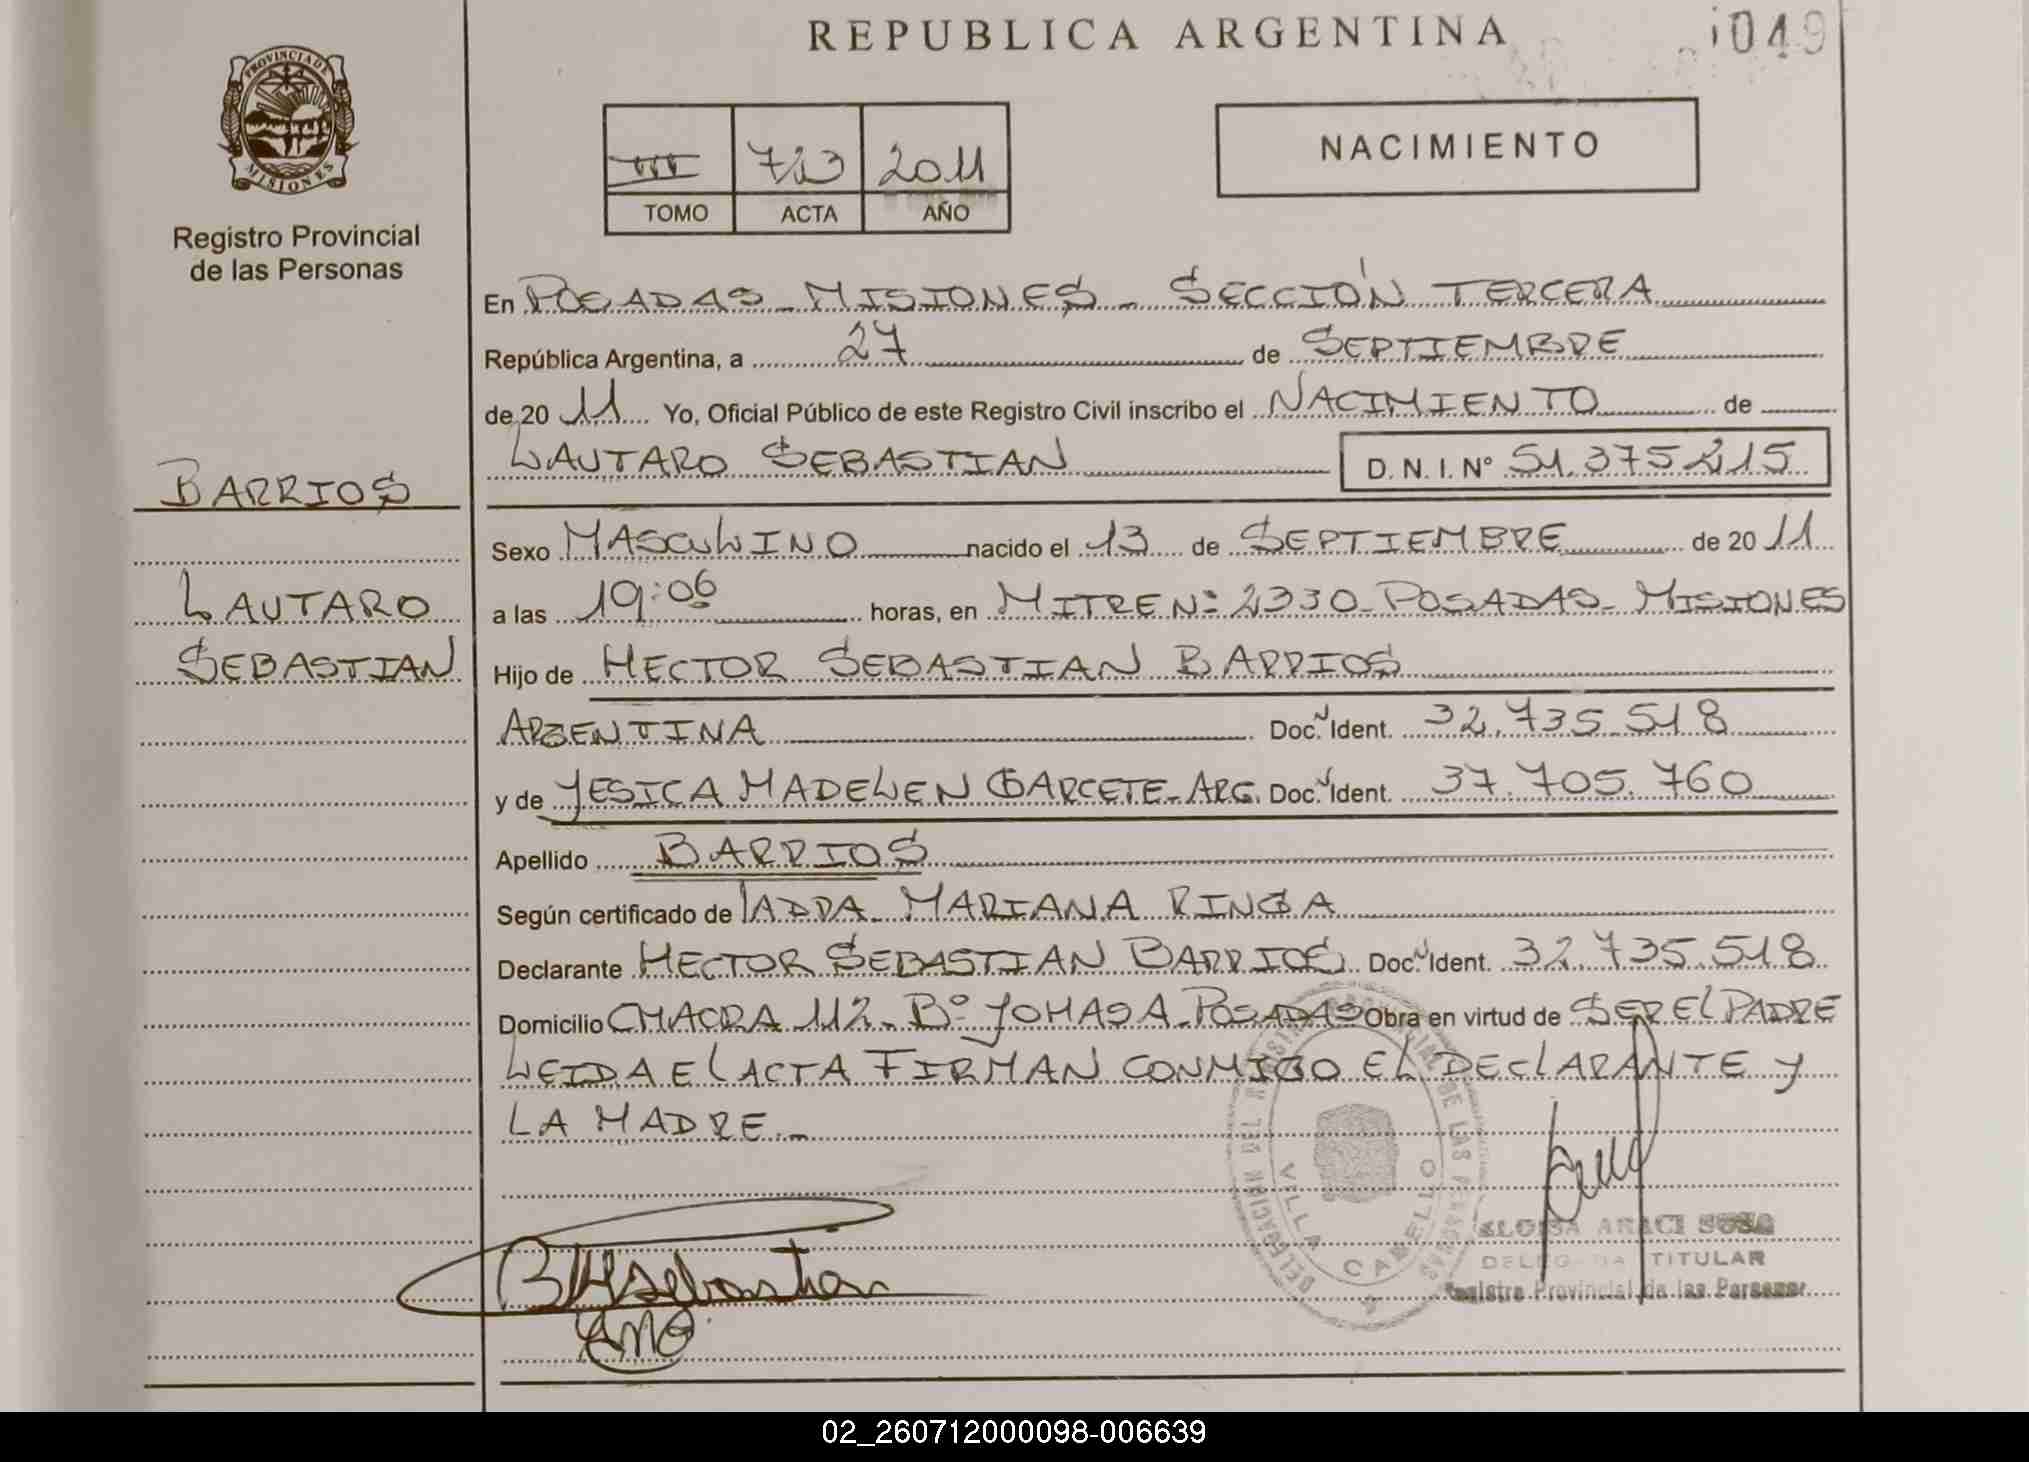 REPUBLICA ARGENTINA
049
PROVINCIA DE MISIONES
Registro Provincial
de las Personas
III 723 2011
TOMO ACTA AÑO
NACIMIENTO
En POSADAS - MISIONES - SECCIÓN TERCERA
República Argentina, a 27 de SEPTIEMBRE
de 20 11 Yo, Oficial Público de este Registro Civil inscribo el NACIMIENTO de
LAUTARO SEBASTIAN D. N. I. N° 51.375.215
BARRIOS
LAUTARO
SEBASTIAN
Sexo MASCULINO nacido el 13 de SEPTIEMBRE de 20 11
a las 19:06 horas, en MITRE Nº 2330 - POSADAS - MISIONES
Hijo de HECTOR SEBASTIAN BARRIOS
ARGENTINA Doc. Ident. 32.735.518
y de YESICA MADELEN GARCETE - ARG. Doc. Ident. 37.705.760
Apellido BARRIOS
Según certificado de MARIANA RINGA
Declarante HECTOR SEBASTIAN BARRIOS Doc. Ident. 32.735.518
Domicilio CHACRA 112 - Bº POSADAS Obra en virtud de SER EL PADRE
LEIDA EL ACTA FIRMAN CONMIGO EL DECLARANTE Y
LA MADRE.-
B H Sebastian
DELEGACION DEL REGISTRO PROVINCIAL DE LAS PERSONAS
VILLA CABELLO
ARACI SOSA
DELEGADA TITULAR
Registro Provincial de las Personas
02_260712000098-006639